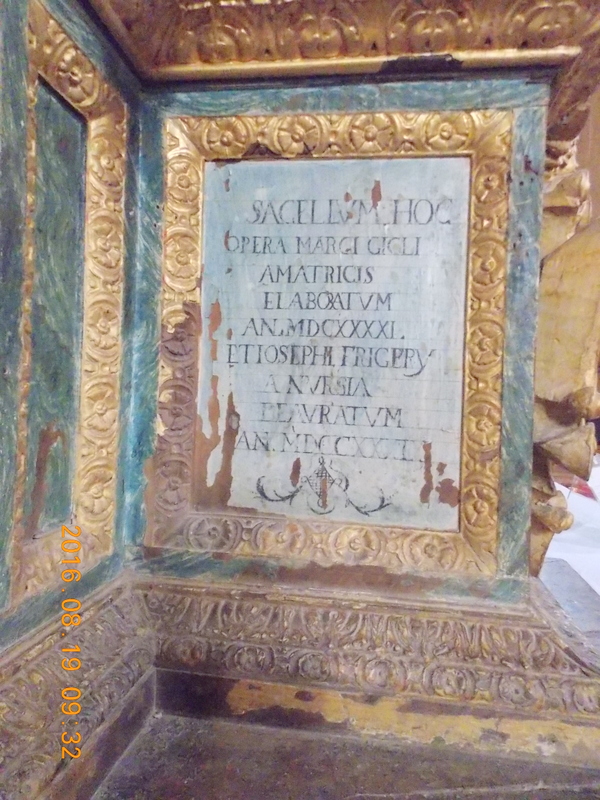 SACELLVM HOC
OPERA MARCI GIGLI
AMATRICIS
ELABORATVM
AN. MDCXXXXI.
ET IOSEPHI
A NVRSIA
DEAVRATVM
AN.
2016.08.19 09:32